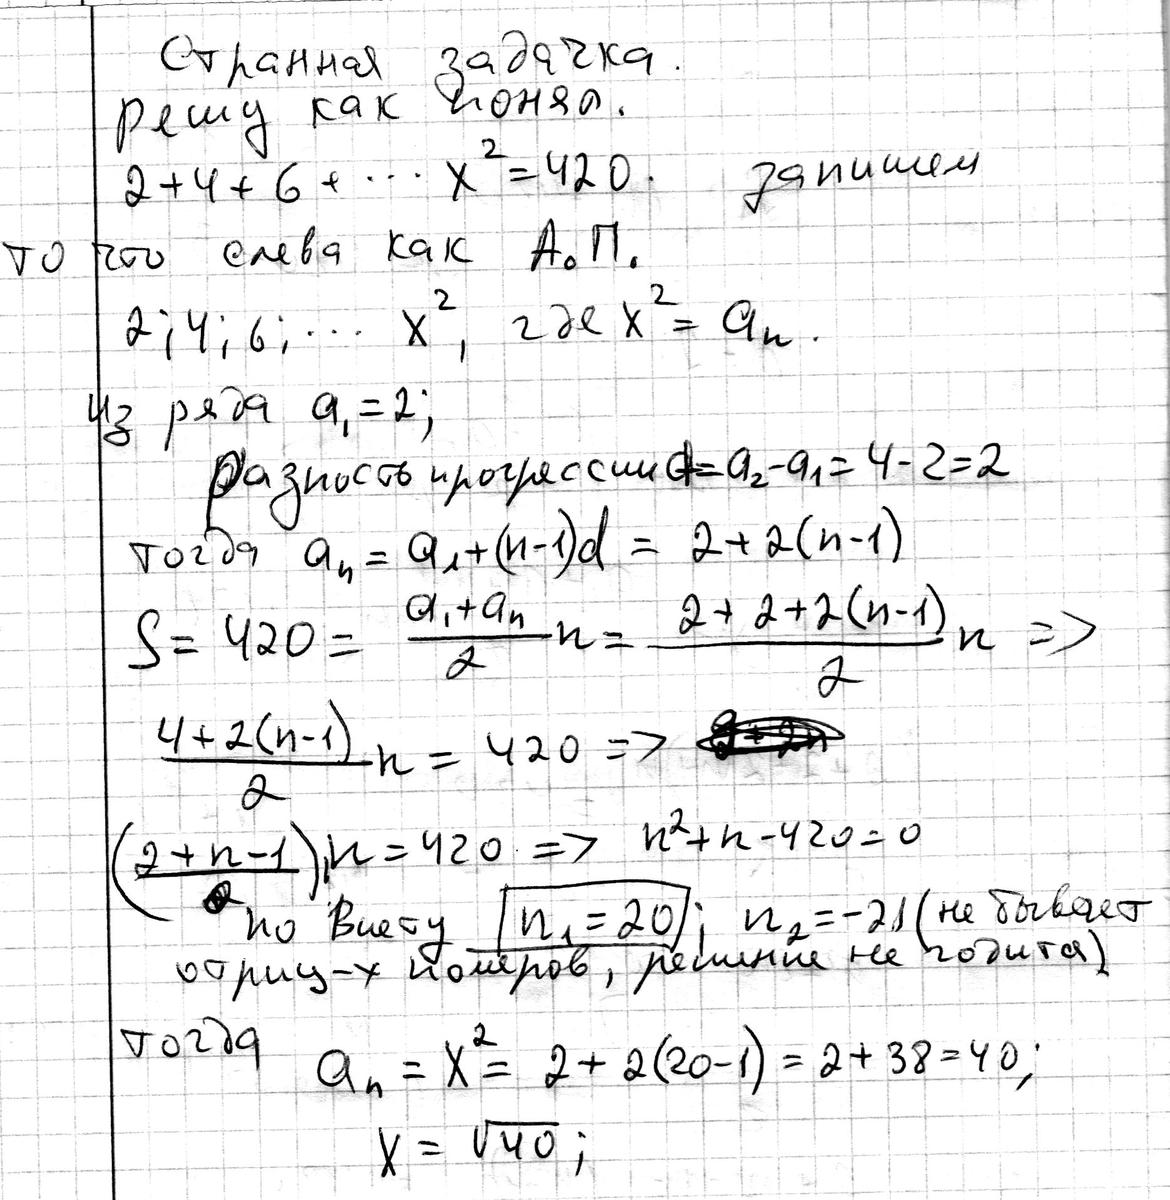 Странная задачка.
решу как понял.
2+4+6+... x²=420. запишем
то что слева как А.П.
2;4;6;... x², где x²= aₙ.
из ряда a₁=2;
Разность прогрессии d=a₂-a₁=4-2=2
тогда aₙ= a₁+(n-1)d = 2+2(n-1)
S= 420= (a₁+aₙ)/2 n= (2+2+2(n-1))/2 n =>
(4+2(n-1))/2 n = 420 =>
(2+n-1)·n=420 => n²+n-420=0
по Виету n₁=20; n₂=-21 (не бывает
отриц-х номеров, решение не годится)
тогда aₙ = x²= 2+2(20-1)=2+38=40;
x = √40;